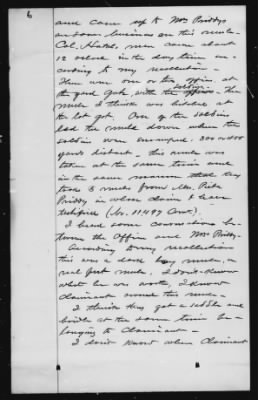 6
and came up to Mrs Priddys
on some business on this mule -
Col. Hatch, men came about
12 oclock in the day time ac-
cording to my recollection -
There was one or two officers at
the yard gate with the soldiers - The
mule I think was hitched at
the lot gate. One of the soldiers
led the mule down where the
soldiers were encamped, 300 or 400
yards distant - This mule was
taken at the same time and
in the same manner that they
took 3 mules from Mrs.
Priddy in whose claim I have
testified (No. 11497 Cong).
I heard some conversation be-
tween the Officer and Mrs Priddy -
According to my recollection
this was a dark bay mule, a
real good mule, I dont know
what he was worth, I know
claimant owned this mule -
I think they got a saddle and
bridle at the same time be-
longing to Claimant -
I dont know when Claimant